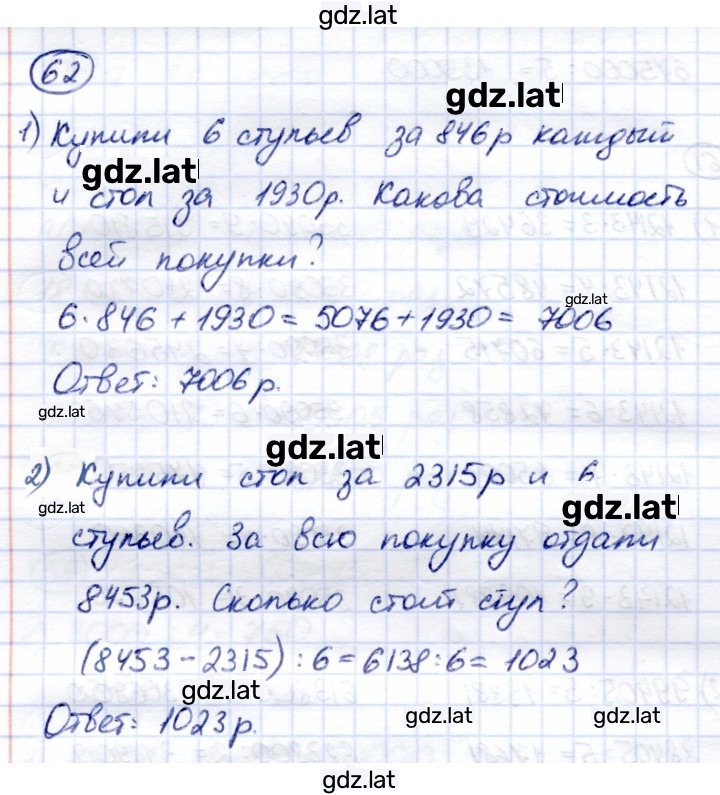 gdz.lat
62
gdz.lat
1) Купили 6 стульев за 846р каждый
gdz.lat
и стол за 1930р. Какова стоимость
всей покупки?
gdz.lat
6·846 + 1930 = 5076 + 1930 = 7006
Ответ: 7006р.
gdz.lat
gdz.lat
2) Купили стол за 2315р и 6
gdz.lat gdz.lat
стульев. За всю покупку отдали
8453р. Сколько стоит стул?
(8453 - 2315) : 6 = 6138 : 6 = 1023
gdz.lat
Ответ: 1023р.
gdz.lat gdz.lat
gdz.lat